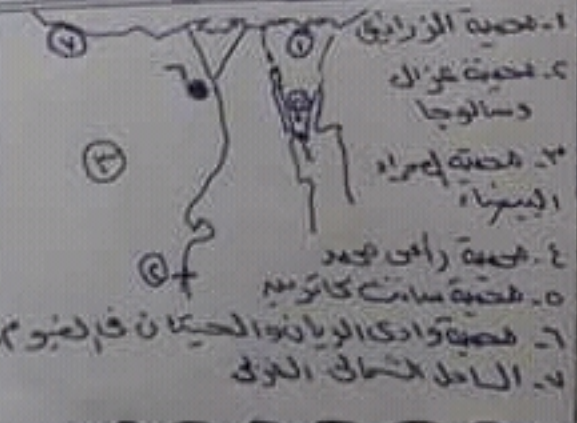 ١- محمية الزرانيق
٢- محمية غزال
وسالوجا
٣- محمية الصحراء
البيضاء
٤- محمية رأس محمد
٥- محمية سانت كاترين
٦- محمية وادى الريان والحيتان فى الفيوم
٧- الساحل الشمالى الغربى
٧
١
٦
٣
٢